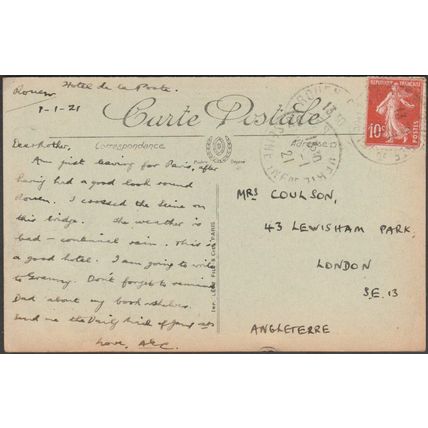 Hotel de la Poste.
Rouen
9-1-21
Carte Postale
Correspondance
Adresse
Dear Mother,
Am just leaving for Paris, after
having had a good look round
Rouen. I crossed the Seine on
this bridge. The weather is
bad - continual rain. This is
a good hotel. I am going to write
to Granny. Don't forget to remind
Dad about my book
Send me the Daily
Love,
MRS COULSON,
43 LEWISHAM PARK,
LONDON
S.E. 13
ANGLETERRE
REPUBLIQUE FRANÇAISE
10c
POSTES
ROUEN
SEINE